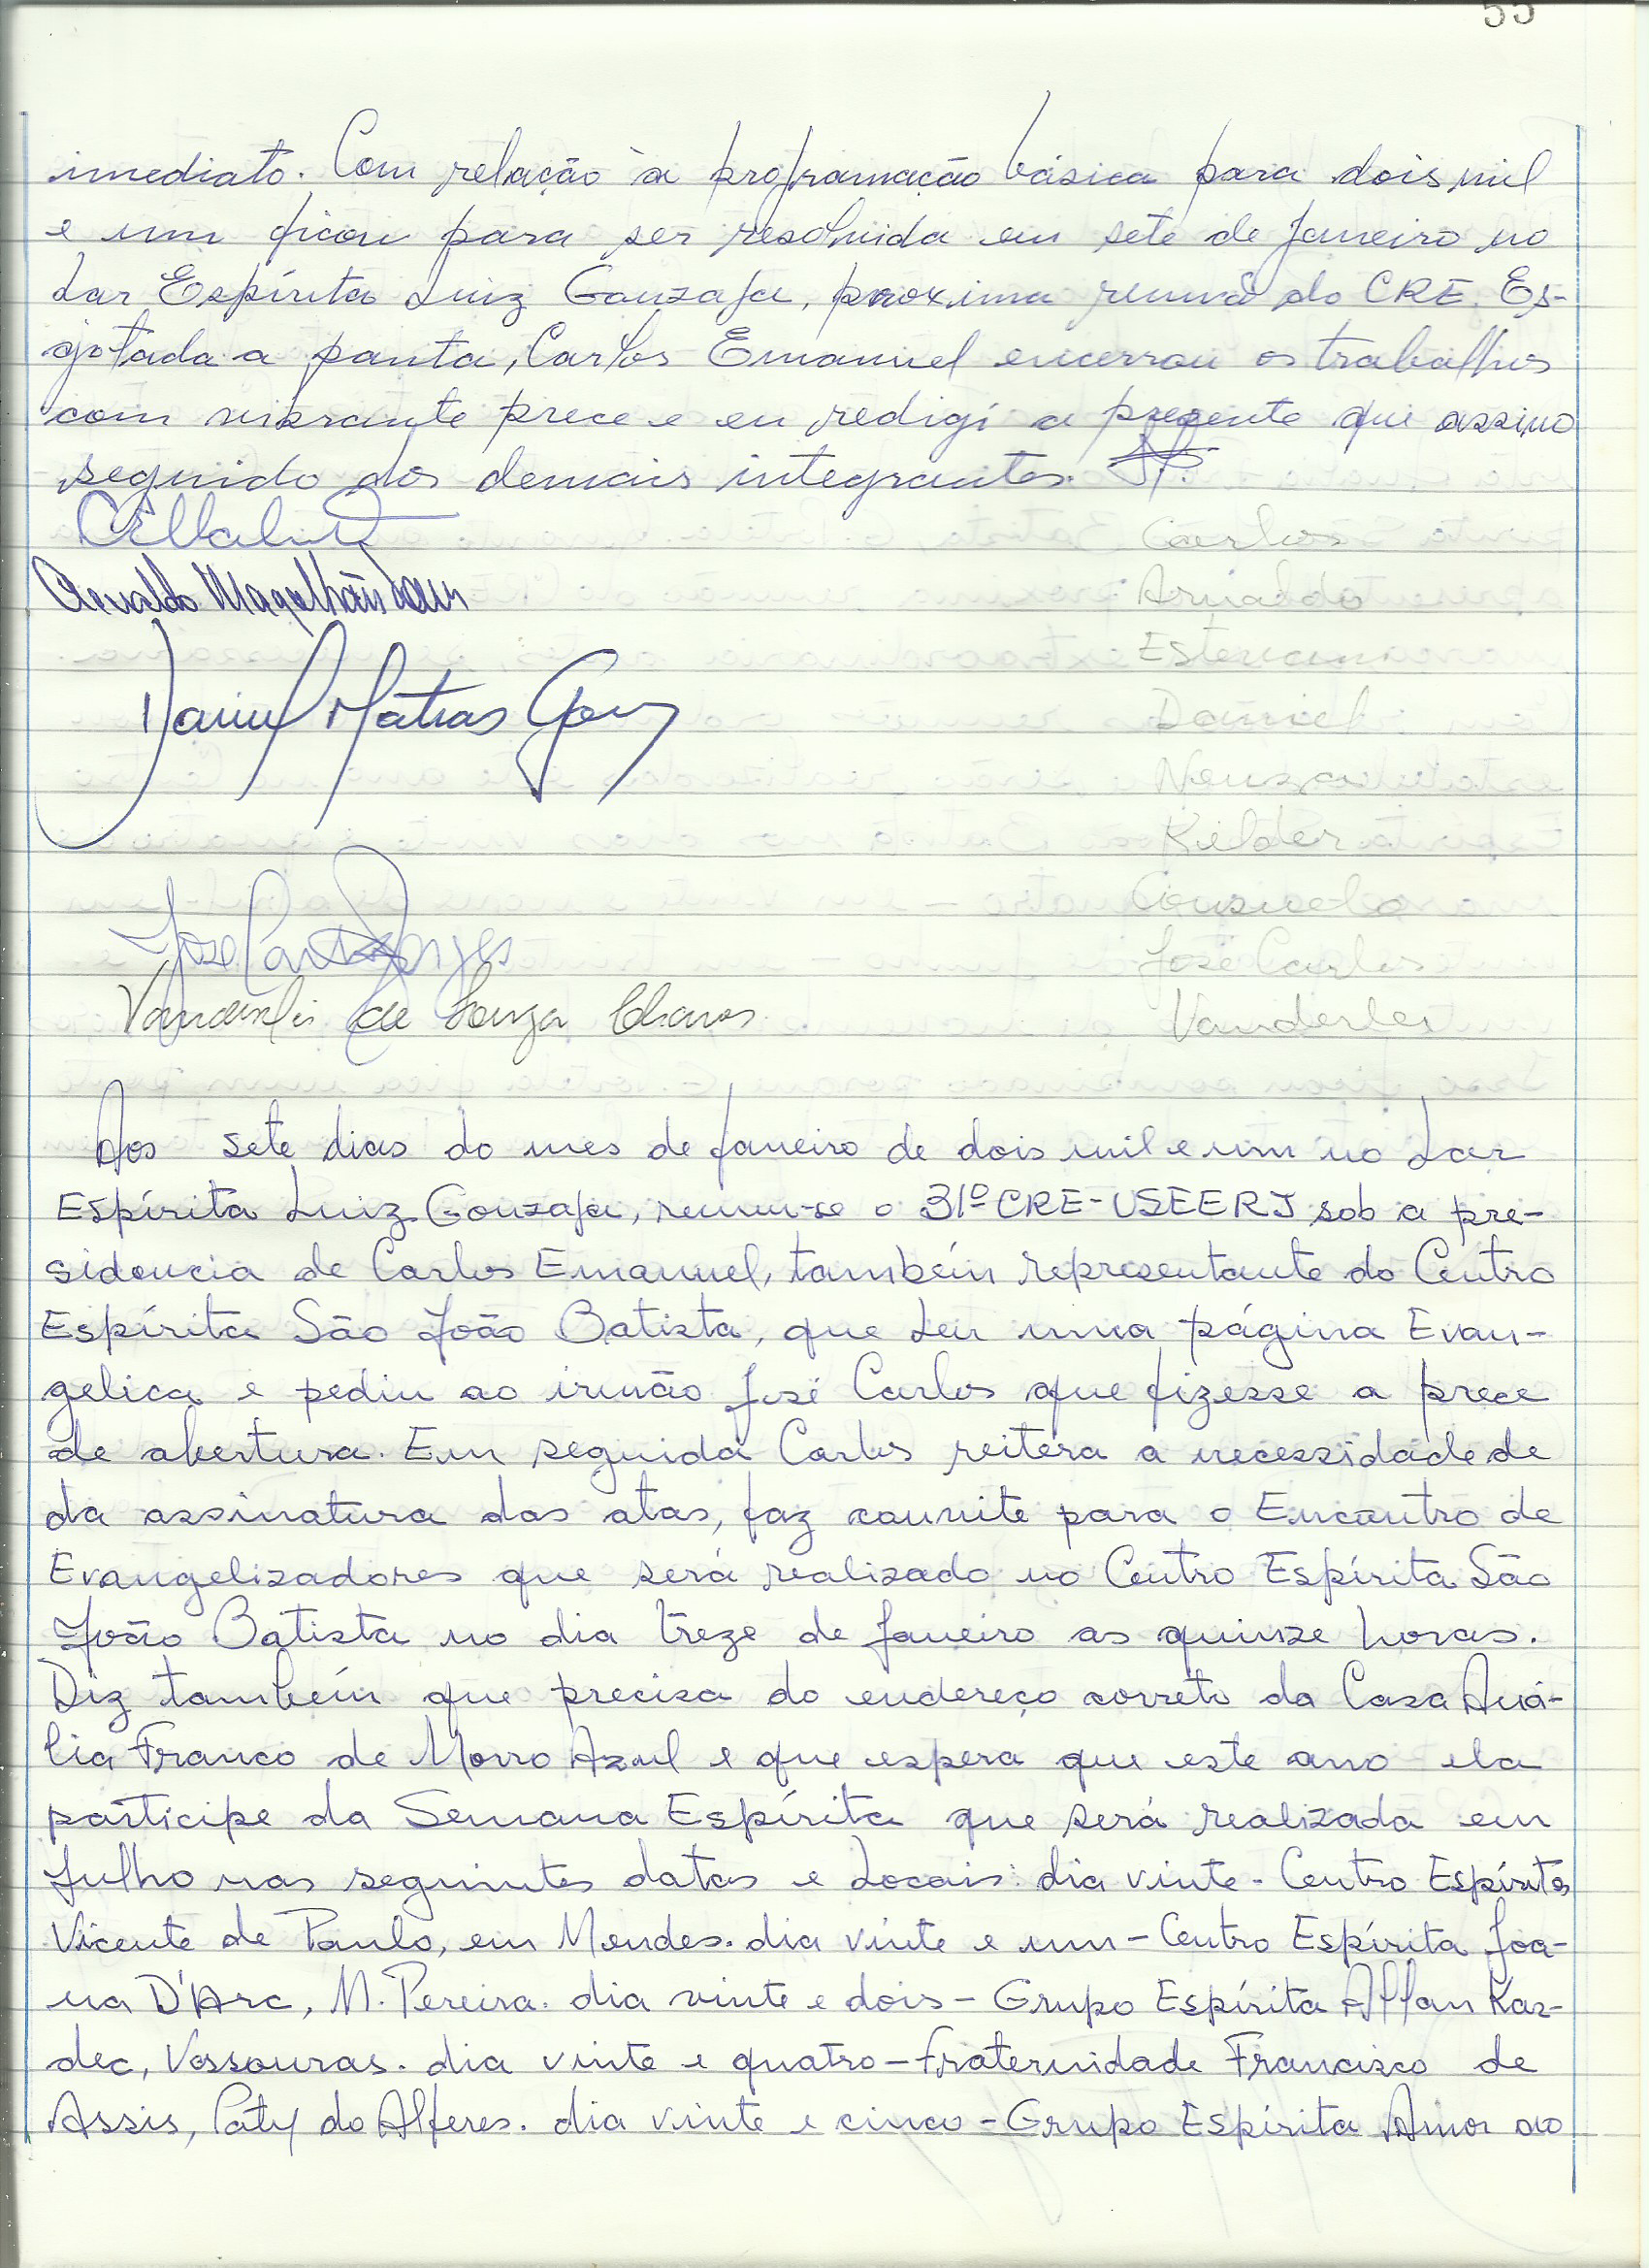 55
imediato. Com relação à programação básica para dois mil
e um ficou para ser resolvida em sete de Janeiro no
Lar Espírita Luiz Gonzaga, proxima reunião do CRE. Es-
gotada a pauta, Carlos Emanuel encerrou os trabalhos
com vibrante prece e eu redigi a presente que assino
seguido dos demais integrantes.
Carlos
Arnaldo Magalhães
Arnaldo
Estevam
Daniel Matias Gomes
Daniel
Neuza
Kelder
Consuelo
José Carlos Borges
José Carlos
Vanderlei de Souza Chaves
Vanderlei
Aos sete dias do mes de Janeiro de dois mil e um no Lar
Espírita Luiz Gonzaga, reuniu-se o 31º CRE-USEERJ sob a pre-
sidencia de Carlos Emanuel, também representante do Centro
Espírita São João Batista, que leu uma página Evan-
gelica e pediu ao irmão José Carlos que fizesse a prece
de abertura. Em seguida Carlos reitera a necessidade de
da assinatura das atas, faz convite para o Encontro de
Evangelizadores que será realizado no Centro Espírita São
João Batista no dia treze de Janeiro as quinze horas.
Diz também que precisa do endereço correto da Casa Aná-
lia Franco de Morro Azul e que espera que este ano ela
participe da Semana Espírita que será realizada em
Julho nas seguintes datas e locais: dia vinte - Centro Espírita
Vicente de Paulo, em Mendes. dia vinte e um - Centro Espírita Joa-
na D'Arc, M. Pereira. dia vinte e dois - Grupo Espírita Allan Kar-
dec, Vassouras. dia vinte e quatro - Fraternidade Francisco de
Assis, Paty do Alferes. dia vinte e cinco - Grupo Espírita Amor ao